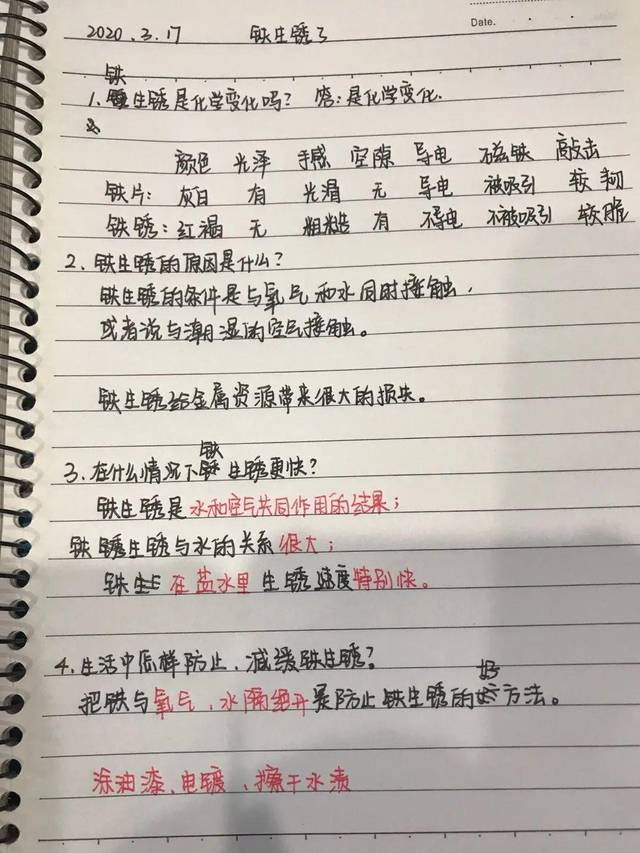 Date.
2020.3.17 铁生锈了
铁
1.生锈是化学变化吗? 答:是化学变化.
颜色 光泽 手感 空隙 导电 磁铁 敲击
铁片: 灰白 有 光滑 无 导电 被吸引 较韧
铁锈: 红褐 无 粗糙 有 不导电 不被吸引 较脆
2.铁生锈的原因是什么?
铁生锈的条件是与氧气和水同时接触,
或者说与潮湿的空气接触。
铁生锈给金属资源带来很大的损失。
铁
3.在什么情况下生锈更快?
铁生锈是水和空气共同作用的结果;
铁锈生锈与水的关系很大;
铁生在盐水里生锈速度特别快。
4.生活中怎样防止、减缓铁生锈?
好
把铁与氧气、水隔绝开是防止铁生锈的方法。
涂油漆、电镀、擦干水渍